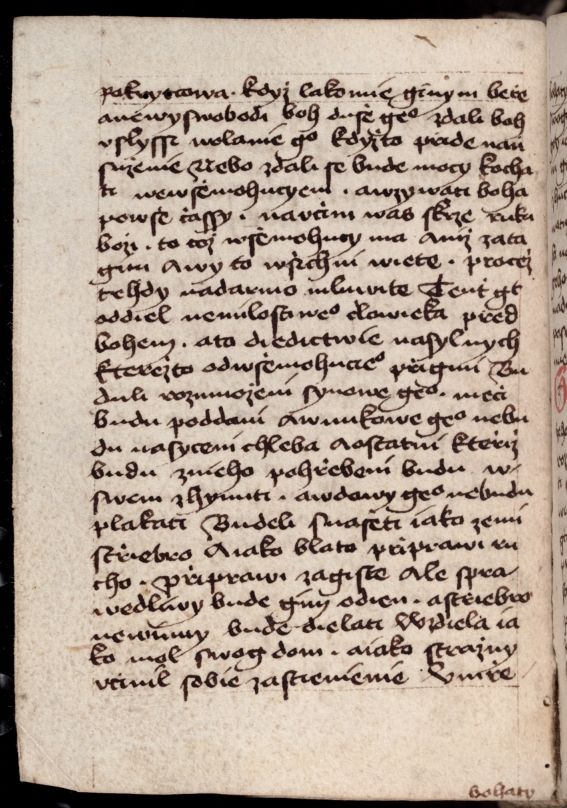 pokrytcowa · když lakomie giným bere
anewyswobodi boh dusse geo zdali boh
vslyssi wolanie go kdyżto přide nań
suženie Nebo zdali se bude mocy kocha
ti wewšemohucyem · awzywati boha
powše čassy · naučim was skrze ruku
boži · to což wšemohucy ma Aniž zata
gim Awy to wšichni wiete · pročež
tehdy nadarmo mluwite Tent gt
oddiel nemilostiweo člowieka před
bohem · ato diedictwie nasylnych
kterežto odwšemohucieo přigmu Bu
duli rozmnoženi synowe geo · meči
budu poddani Awnukowe geo nebu
du nasyceni chleba Aostatni kteřiž
budu znieho pohřebeni budu w
swem zhynuti · awdowy geo nebudu
plakati Budeli snašeti iako zemi
střiebro Aiako blato připrawi ru
cho · Připrawi zagiste Ale spra
wedliwy bude gim odien · astřiebro
newinny bude dieliti Vdiela ia
ko mol swog dom · aiako stražny
včinil sobie zastienienie Vmře
bohaty